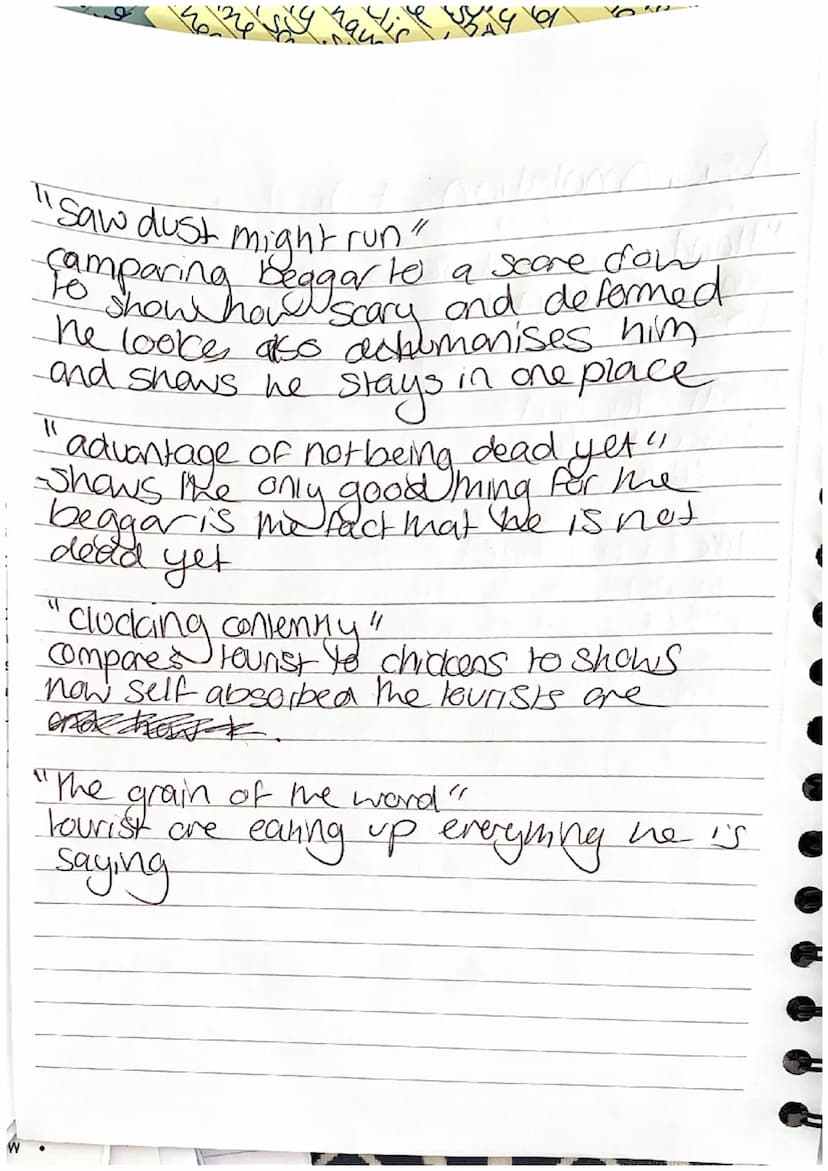 "Saw dust might run"
camparing beggar to a scare crow
to show how scary and deformed
he looks also dehumanises him
and shows he stays in one place
"advantage of not being dead yet"
-shows the only good thing for the
beggar is the fact that he is not
dead yet
"clucking contently"
compares tourist to chickens to shows
how self absorbed the tourists are
"the grain of the word"
tourist are eating up everything he is
saying
W